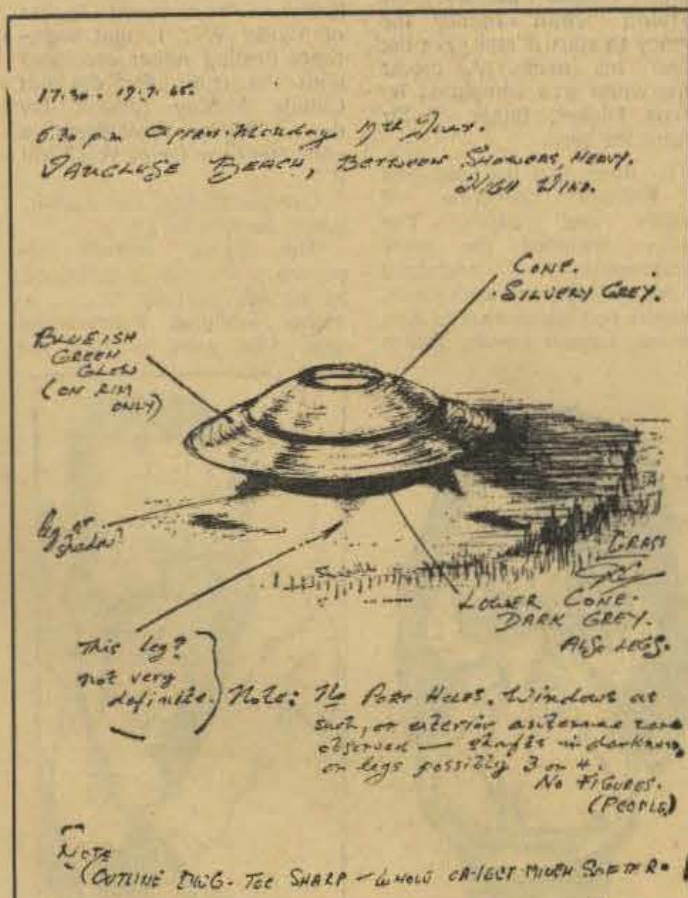 17.30 · 19.7.65.
5.30 p.m. Approx. Monday 19th July.
VAUCLUSE BEACH, BETWEEN SHOWERS, HEAVY.
HIGH WIND.
CONE.
SILVERY GREY.
BLUEISH
GREEN
GLOW
(ON RIM
ONLY)
leg or
shadow?
GRASS
LOWER CONE.
DARK GREY.
ALSO LEGS.
This leg?
not very
definite.
Note: No PORT HOLES, Windows as
such, or exterior antennae were
observed — shafts in darkness,
or legs possibly 3 or 4.
NO FIGURES.
(PEOPLE)
NOTE
(OUTLINE DWG. TOO SHARP — WHOLE OBJECT MUCH SOFTER.